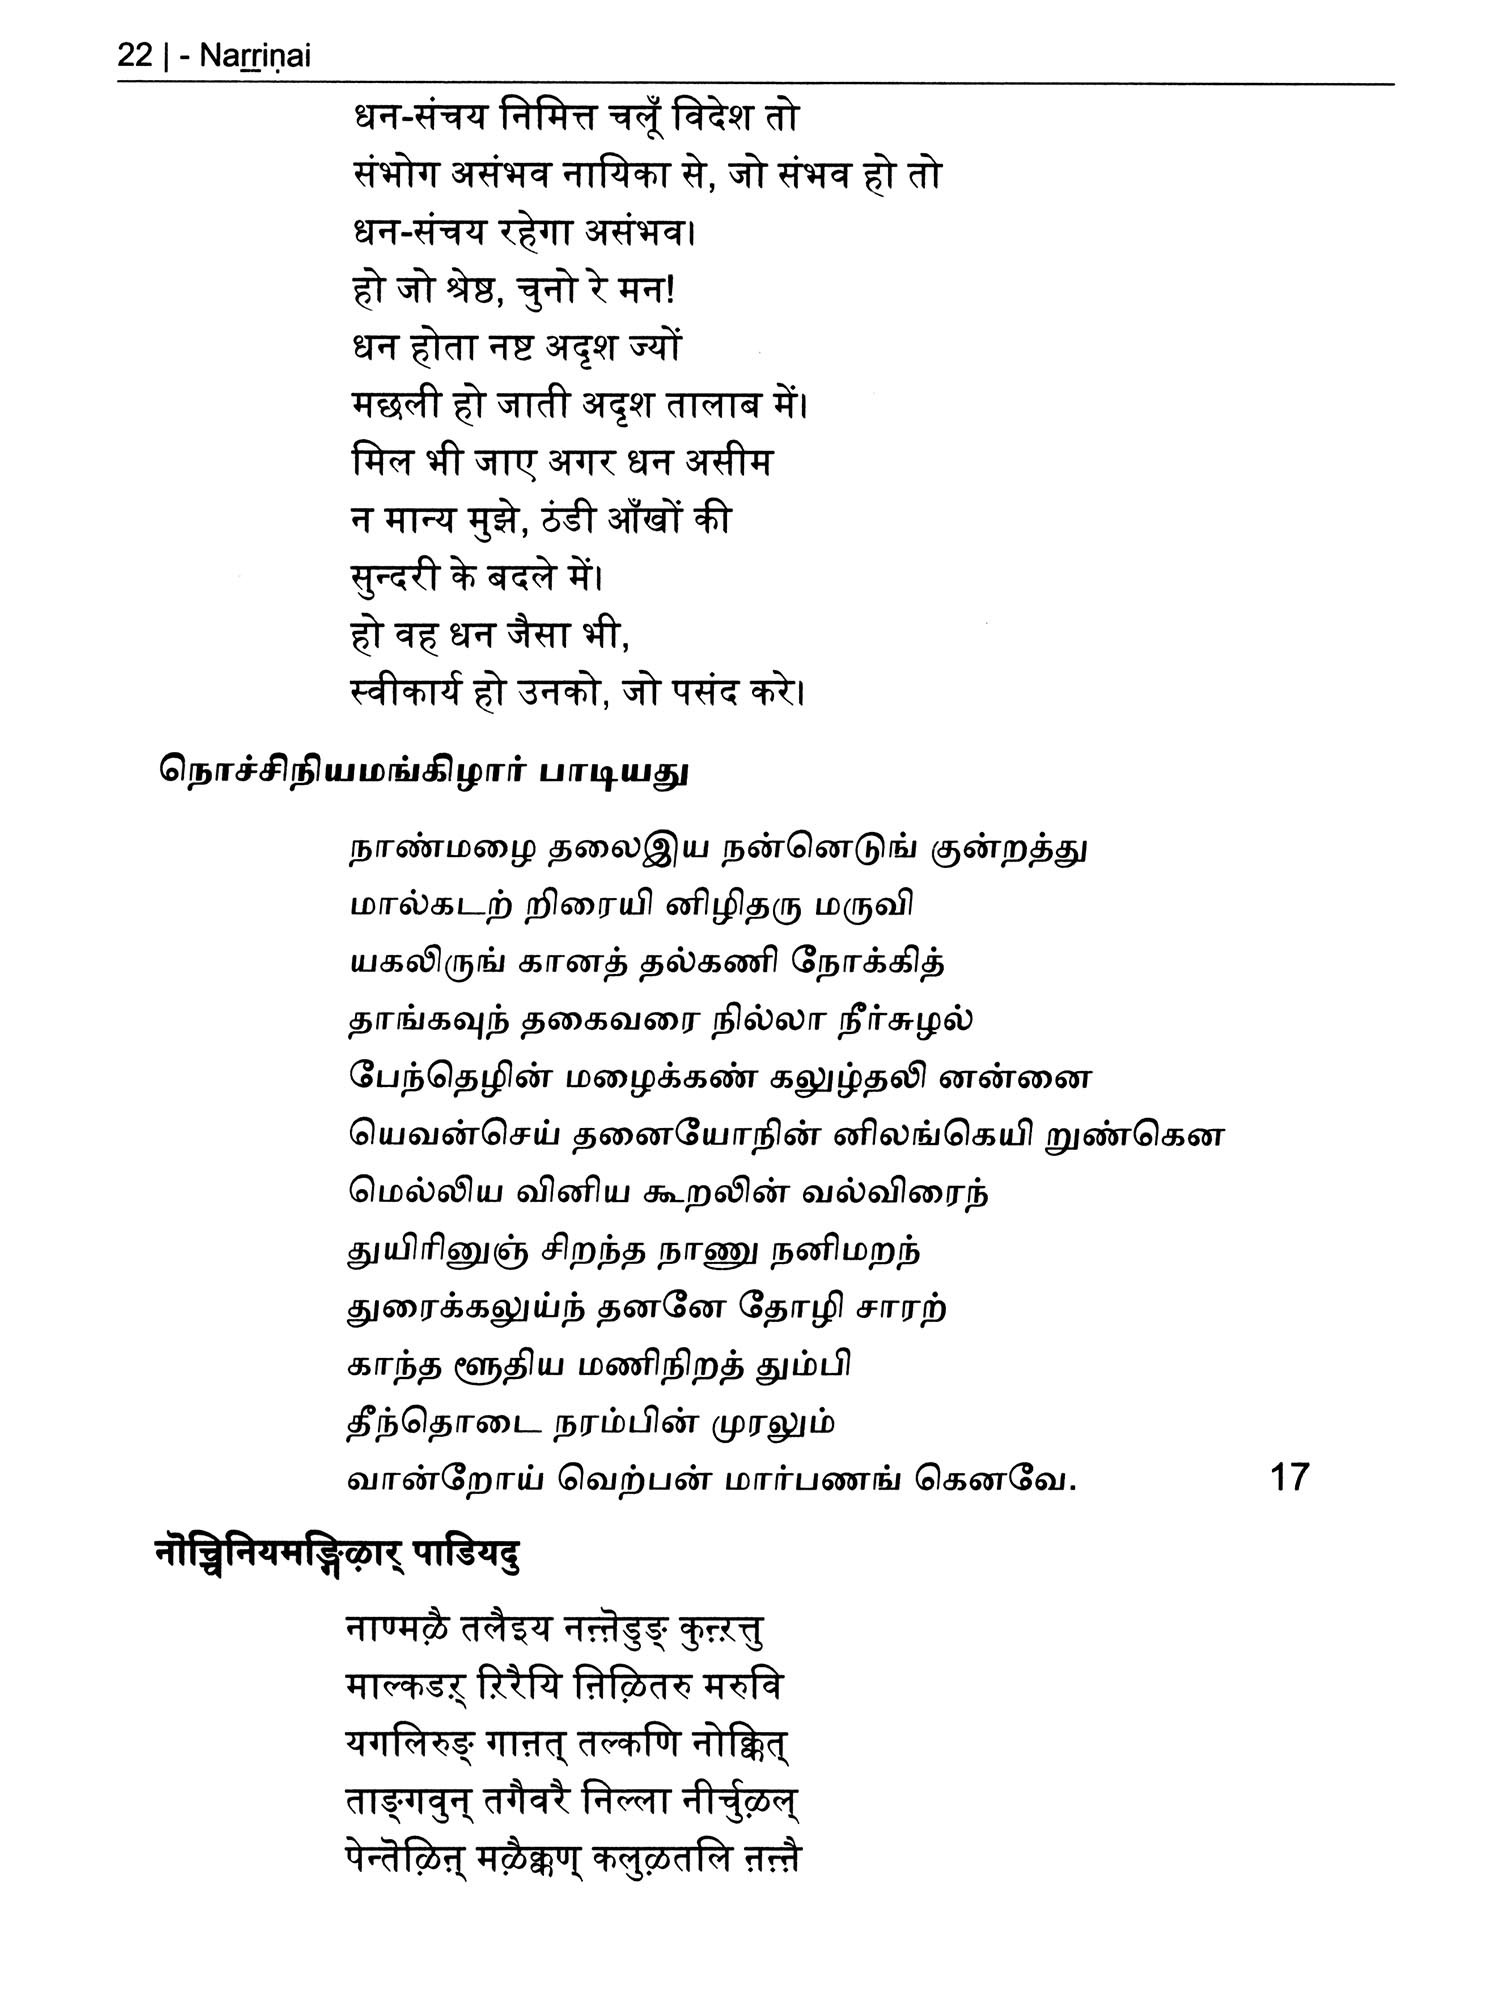 22 | - Naṟṟiṇai
धन-संचय निमित्त चलूँ विदेश तो
संभोग असंभव नायिका से, जो संभव हो तो
धन-संचय रहेगा असंभव।
हो जो श्रेष्ठ, चुनो रे मन!
धन होता नष्ट अदृश ज्यों
मछली हो जाती अदृश तालाब में।
मिल भी जाए अगर धन असीम
न मान्य मुझे, ठंडी आँखों की
सुन्दरी के बदले में।
हो वह धन जैसा भी,
स्वीकार्य हो उनको, जो पसंद करे।
நொச்சிநியமங்கிழார் பாடியது
நாண்மழை தலைஇய நன்னெடுங் குன்றத்து
மால்கடற் றிரையி னிழிதரு மருவி
யகலிருங் கானத் தல்கணி நோக்கித்
தாங்கவுந் தகைவரை நில்லா நீர்சுழல்
பேந்தெழின் மழைக்கண் கலுழ்தலி னன்னை
யெவன்செய் தனையோநின் னிலங்கெயி றுண்கென
மெல்லிய வினிய கூறலின் வல்விரைந்
துயிரினுஞ் சிறந்த நாணு நனிமறந்
துரைக்கலுய்ந் தனனே தோழி சாரற்
காந்த ளூதிய மணிநிறத் தும்பி
தீந்தொடை நரம்பின் முரலும்
வான்றோய் வெற்பன் மார்பணங் கெனவே. 17
नॊच्चिनियमङ्गिऴार् पाडियदु
नाण्मऴै तलैइय नऩ्ऩॆडुङ् कुऩ्ऱत्तु
माल्कडऱ् ऱिरैयि ऩिऴितरु मरुवि
यगलिरुङ् गाऩत् तल्कणि नोक्कित्
ताङ्गवुन् तगैवरै निल्ला नीर्चुऴल्
पेन्तॆऴिऩ् मऴैक्कण् कलुऴतलि ऩऩ्ऩै